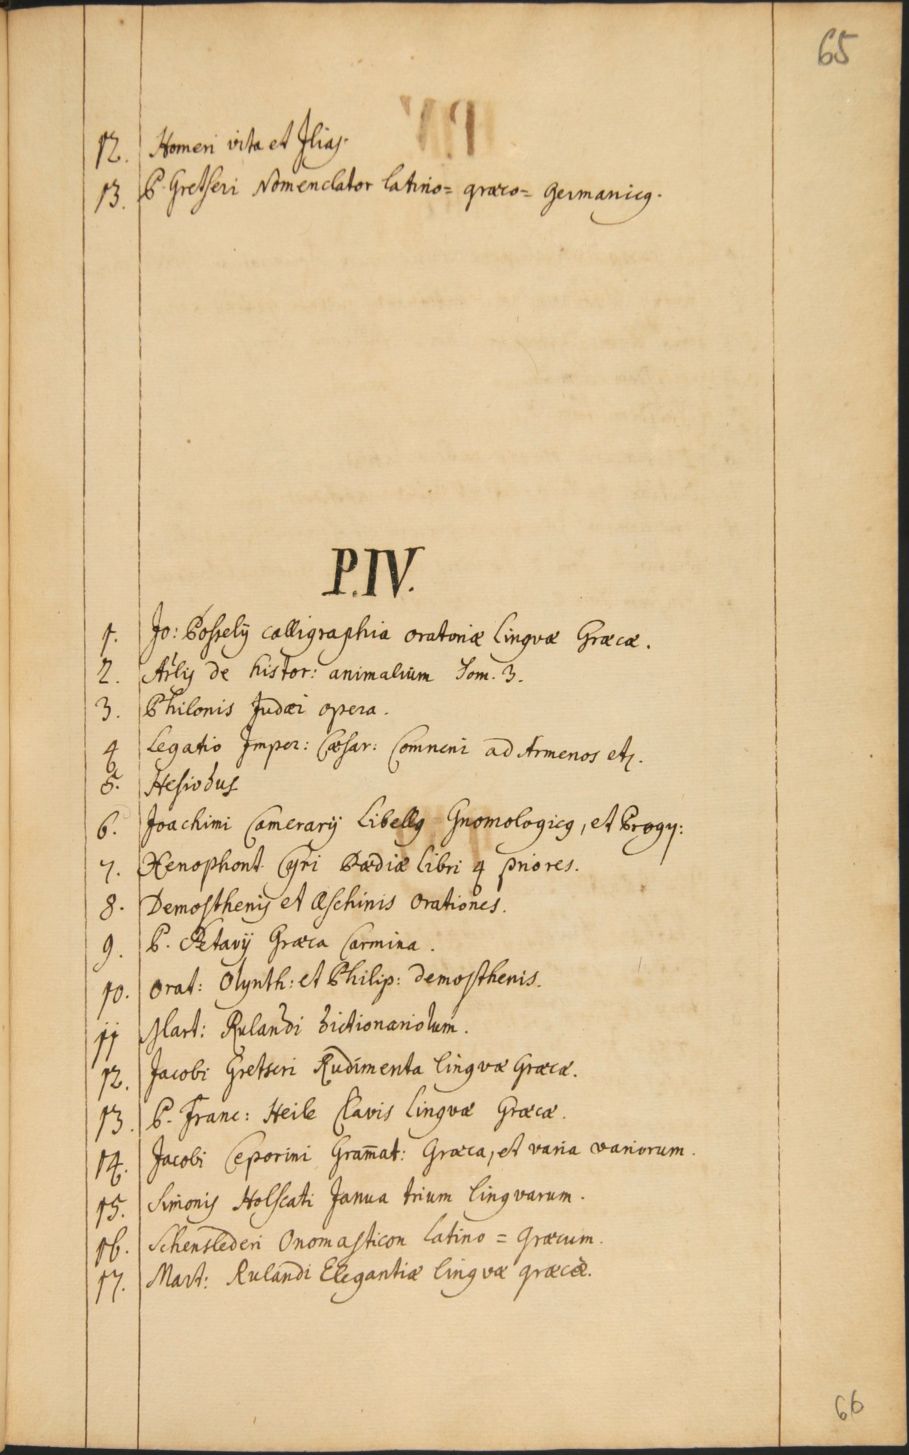 65
12. Homeri vita et Ilias.
13. P. Gretseri Nomenclator latino= græco= germanicus.
P.IV.
1. Jo: Posselij calligraphia oratoriæ linguæ Græcæ.
2. Arlis de histor: animalium Tom. 3.
3. Philonis Judæi opera.
4 Legatio Imper: Cæsar: Comneni ad Armenos etc.
5. Hesiodus
6. Joachimi Camerarij Libellus Gnomologicus, et Progy:
7. Xenophont Cyri Pædiæ libri 4 priores.
8. Demosthenis et Æschinis orationes.
9. P. Petavij Græca Carmina.
10. orat: Olynth: et Philip: demosthenis.
11 Mart: Rulandi dictionariolum.
12. Jacobi Gretseri Rudimenta linguæ Græcæ.
13. P. Franc: Heile Clavis linguæ Græcæ.
14. Jacobi Ceporini Gram̄at: Græca, et varia variorum.
15. Simonis Holscati Janua trium linguarum.
16. Schenslederi Onomasticon latino = græcum.
17. Mart: Rulandi Elegantiæ linguæ græcæ.
66